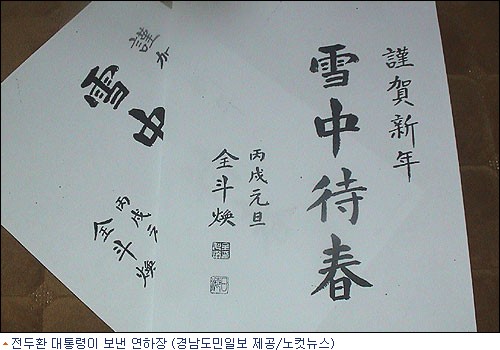 謹賀新年
雪中待春
丙戌元旦
全斗煥
謹
雪中
丙戌元
全斗煥
전두환 대통령이 보낸 연하장 (경남도민일보 제공/노컷뉴스)